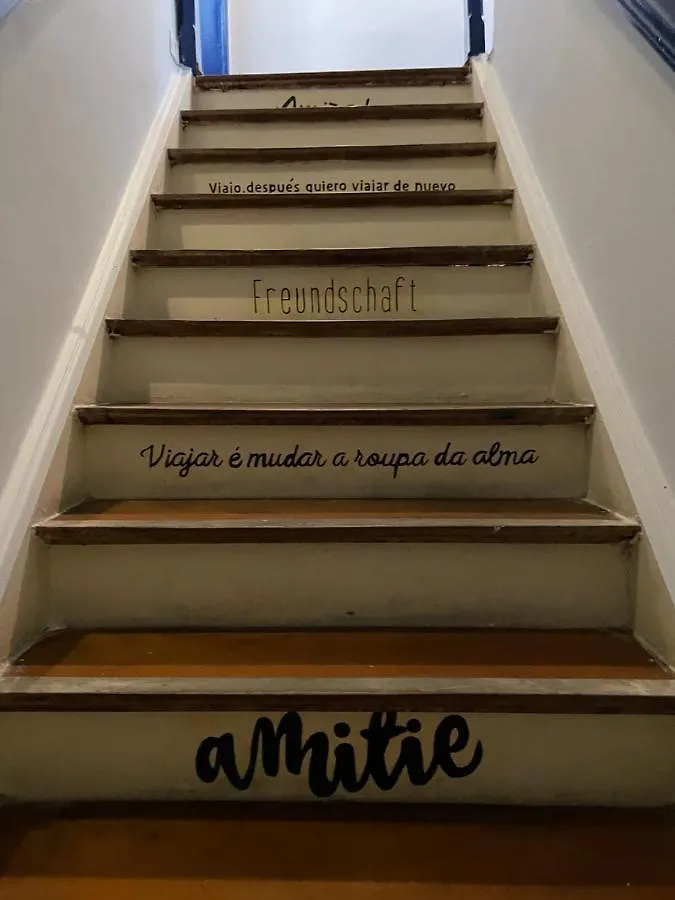 Viajo,después quiero viajar de nuevo
Freundschaft
Viajar é mudar a roupa da alma
amitie